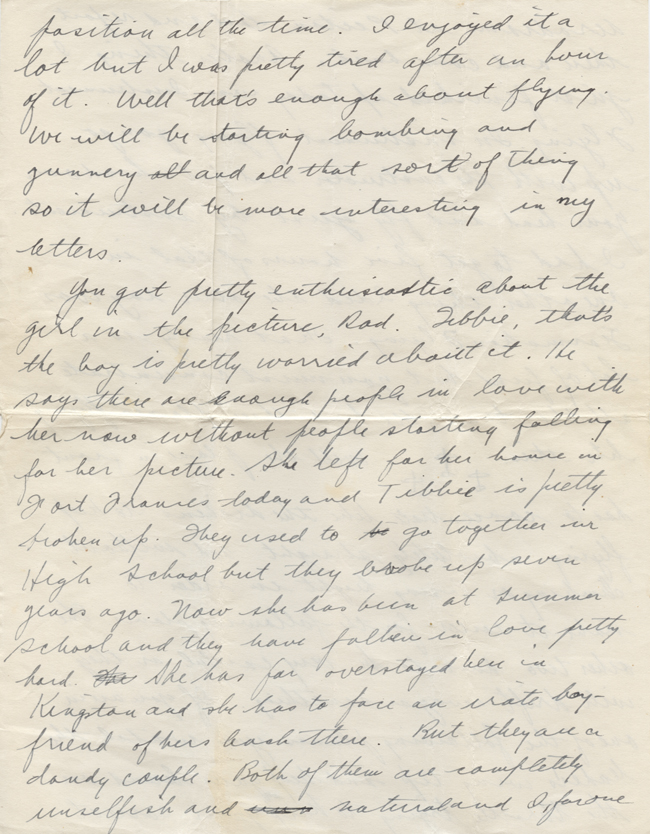 position all the time. I enjoyed it a
lot but I was pretty tired after an hour
of it. Well that's enough about flying.
We will be starting bombing and
gunnery all and all that sort of thing
so it will be more interesting in my
letters.
You got pretty enthusiastic about the
girl in the picture, Dad. Tibbie, that's
the boy is pretty worried about it. He
says there are enough people in love with
her now without people starting falling
for her picture. She left for her home in
Fort Frances today and Tibbie is pretty
broken up. They used to to go together in
High School but they broke up seven
years ago. Now she has been at summer
school and they have fallen in love pretty
hard. She has far overstayed here in
Kingston and she has to face an irate boy-
friend of hers back there. But they are a
dandy couple. Both of them are completely
unselfish and natural and I, for one